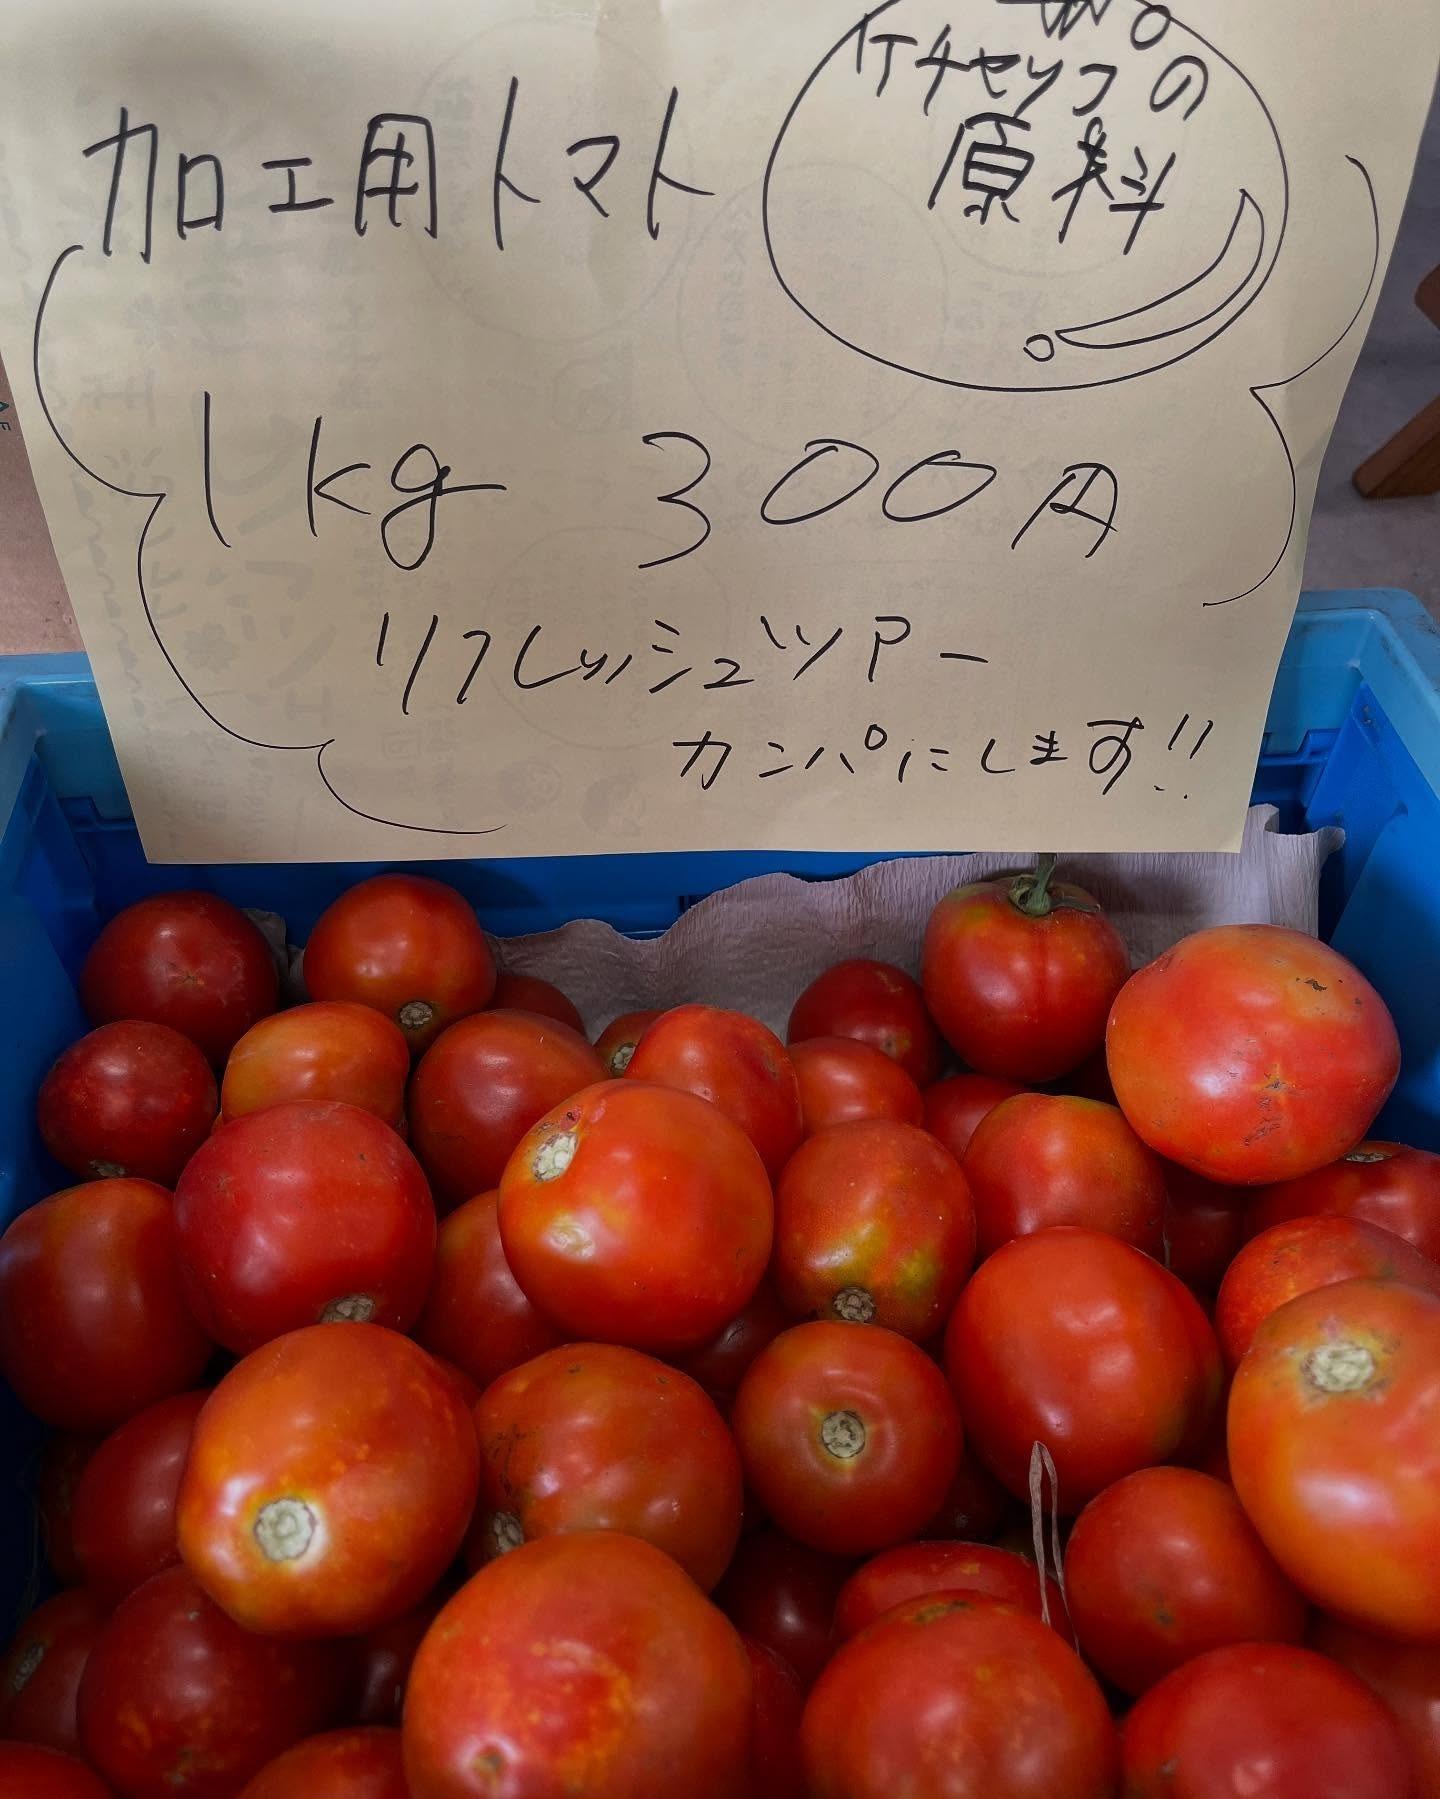 加工用トマト
ケチャップの
原料
1kg 300円
リフレッシュツアー
カンパにします!!